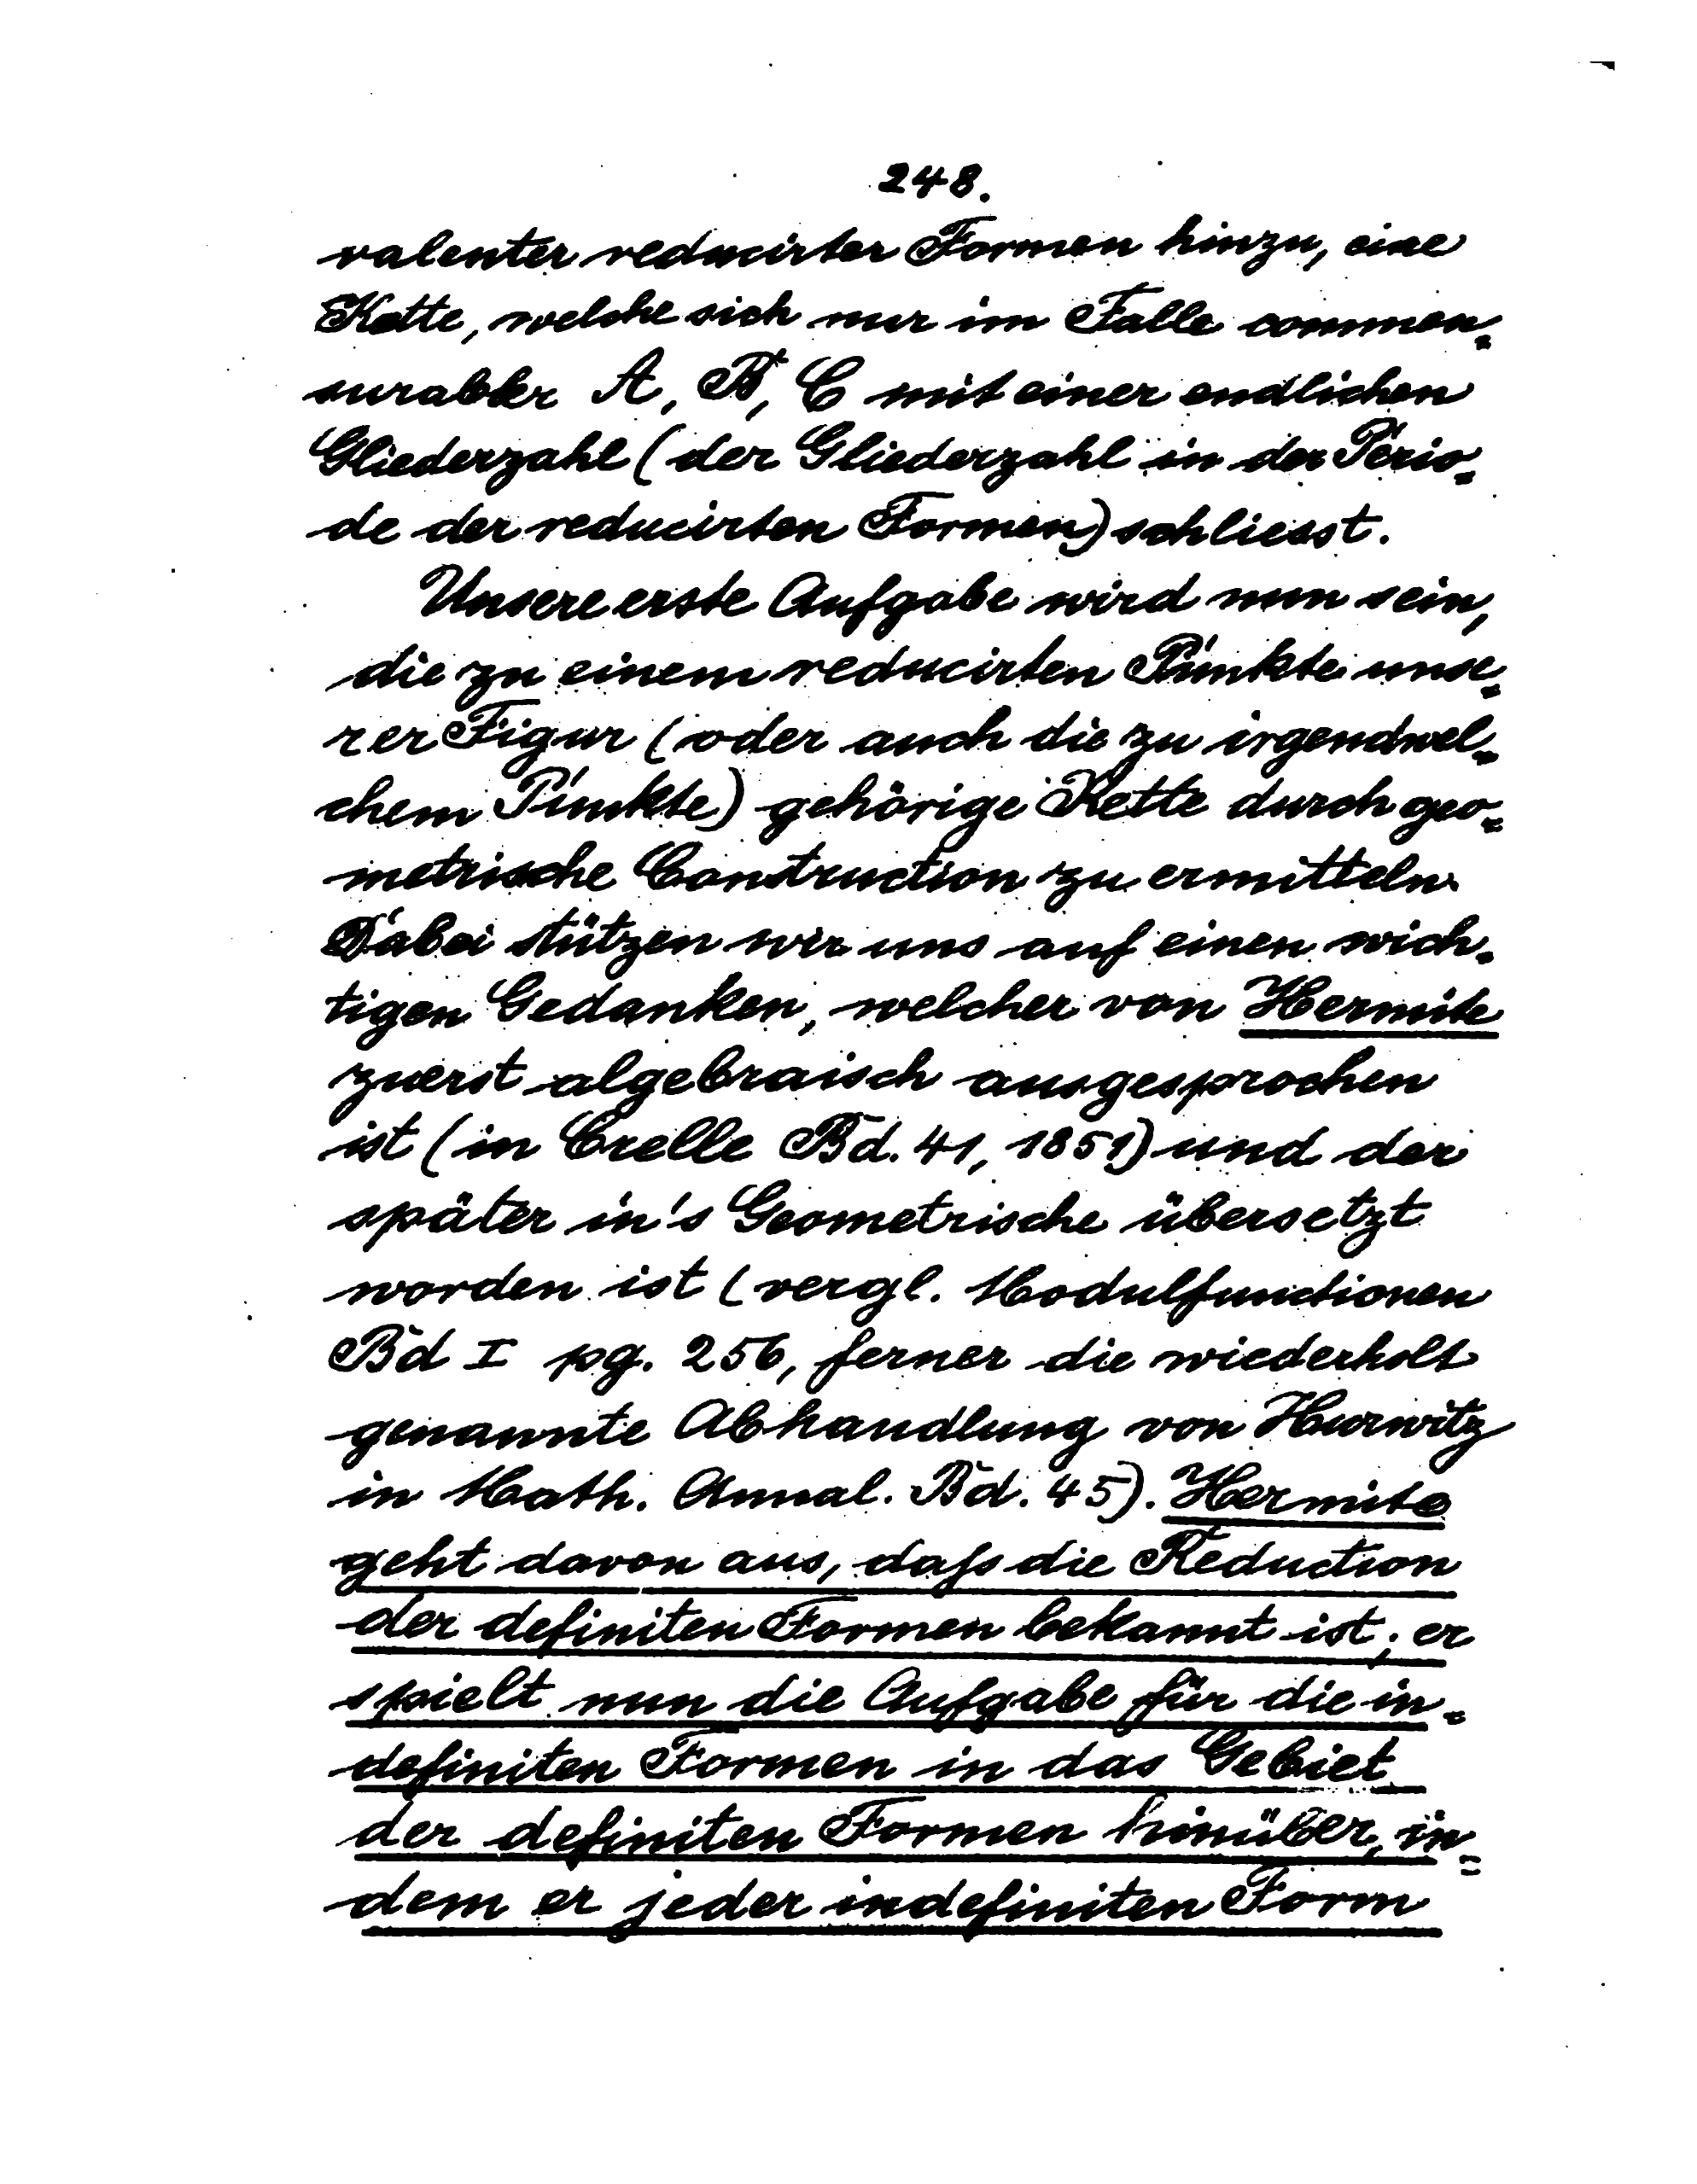 248.
valenter reducirter Formen hinzu, eine
Kette, welche sich nur im Falle commen=
surabler A, B, C mit einer endlichen
Gliederzahl (der Gliederzahl in der Perio=
de der reducirten Formen) schliesst.
Unsere erste Aufgabe wird nun sein,
die zu einem reducirten Punkte unse=
rer Figur (oder auch die zu irgendwel=
chem Punkte) gehörige Kette durch geo=
metrische Construction zu ermitteln.
Dabei stützen wir uns auf einen wich=
tigen Gedanken, welcher von Hermite
zuerst algebraisch ausgesprochen
ist (in Crelle Bd. 41, 1851) und der
später in's Geometrische übersetzt
worden ist (vergl. Modulfunctionen
Bd I pg. 256, ferner die wiederholt
genannte Abhandlung von Hurwitz
in Math. Annal. Bd. 45). Hermite
geht davon aus, daß die Reduction
der definiten Formen bekannt ist; er
spielt nun die Aufgabe für die in=
definiten Formen in das Gebiet
der definiten Formen hinüber, in=
dem er jeder indefiniten Form